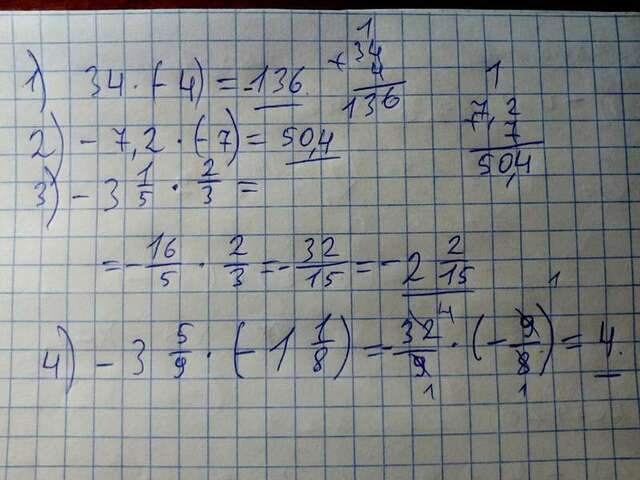 1) 34 · (- 4) = -136
1
× 34
4
136
2) - 7,2 · (-7) = 50,4
1
× 7,2
7
50,4
3) - 3 1/5 · 2/3 =
= - 16/5 · 2/3 = - 32/15 = - 2 2/15
4) - 3 5/9 · (- 1 1/8) = - 32/9 · (- 9/8) = 4.
4 1
1 1